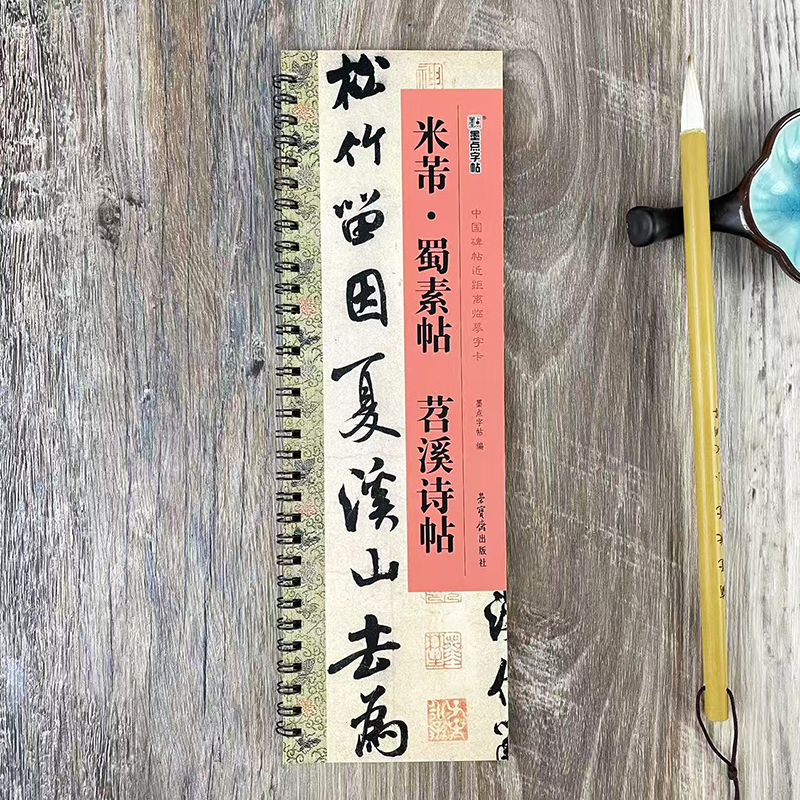 墨点字帖
中国碑帖近距离临摹字卡
墨点字帖 编
荣寶齋出版社
米芾·蜀素帖 苕溪诗帖
松竹留因夏溪山去為